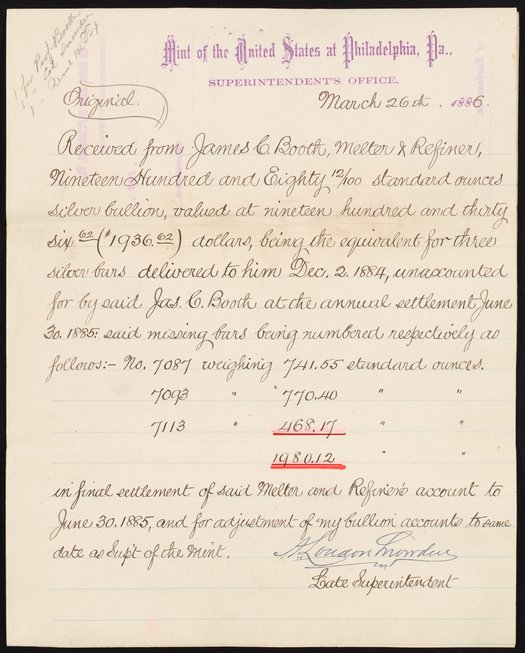 1 for Prof. Booth
1 " Col. Snowden
1 - Danl M. Fox
Mint of the United States at Philadelphia, Pa.,
SUPERINTENDENT'S OFFICE.
Original.
March 26th. 1886.
Received from James C. Booth, Melter & Refiner,
Nineteen Hundred and Eighty 12/100 standard ounces
silver bullion, valued at nineteen hundred and thirty
six 62 ($1936.62) dollars, being the equivalent for three
silver bars delivered to him Dec. 2. 1884, unaccounted
for by said Jas. C. Booth at the annual settlement June
30. 1885: said missing bars being numbered respectively as
follows:- No. 7087 weighing 741.55 standard ounces.
7093 " 770.40 " "
7113 " 468.17 " "
1980.12 " "
in final settlement of said Melter and Refiner's account to
June 30. 1885, and for adjustment of my bullion accounts to same
date as Sup't of the Mint.
A. Loudon Snowden
Late Superintendent